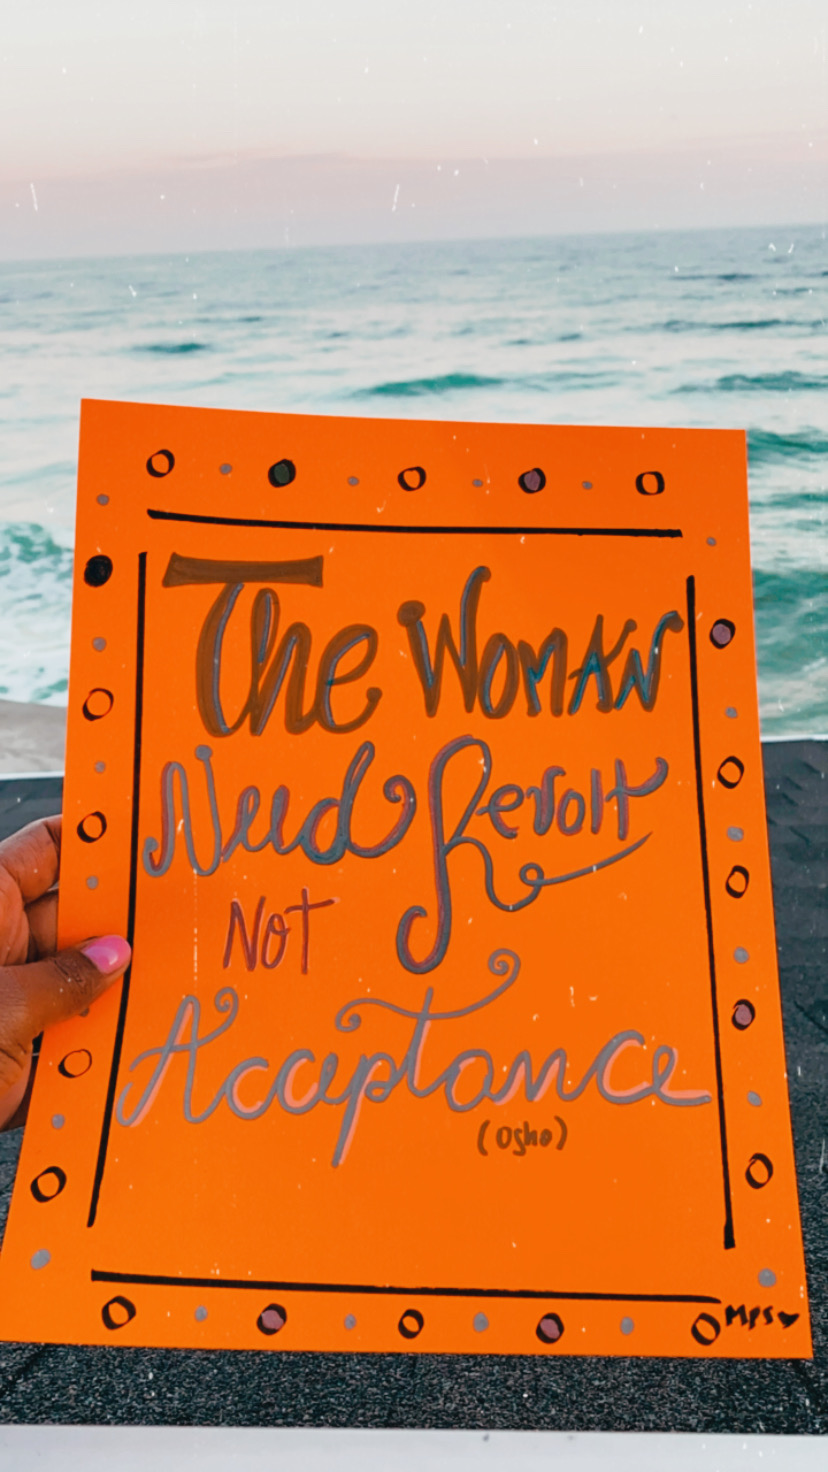 The WOMAN
Need Revolt
NOT
Acceptance
(Osho)
MPS